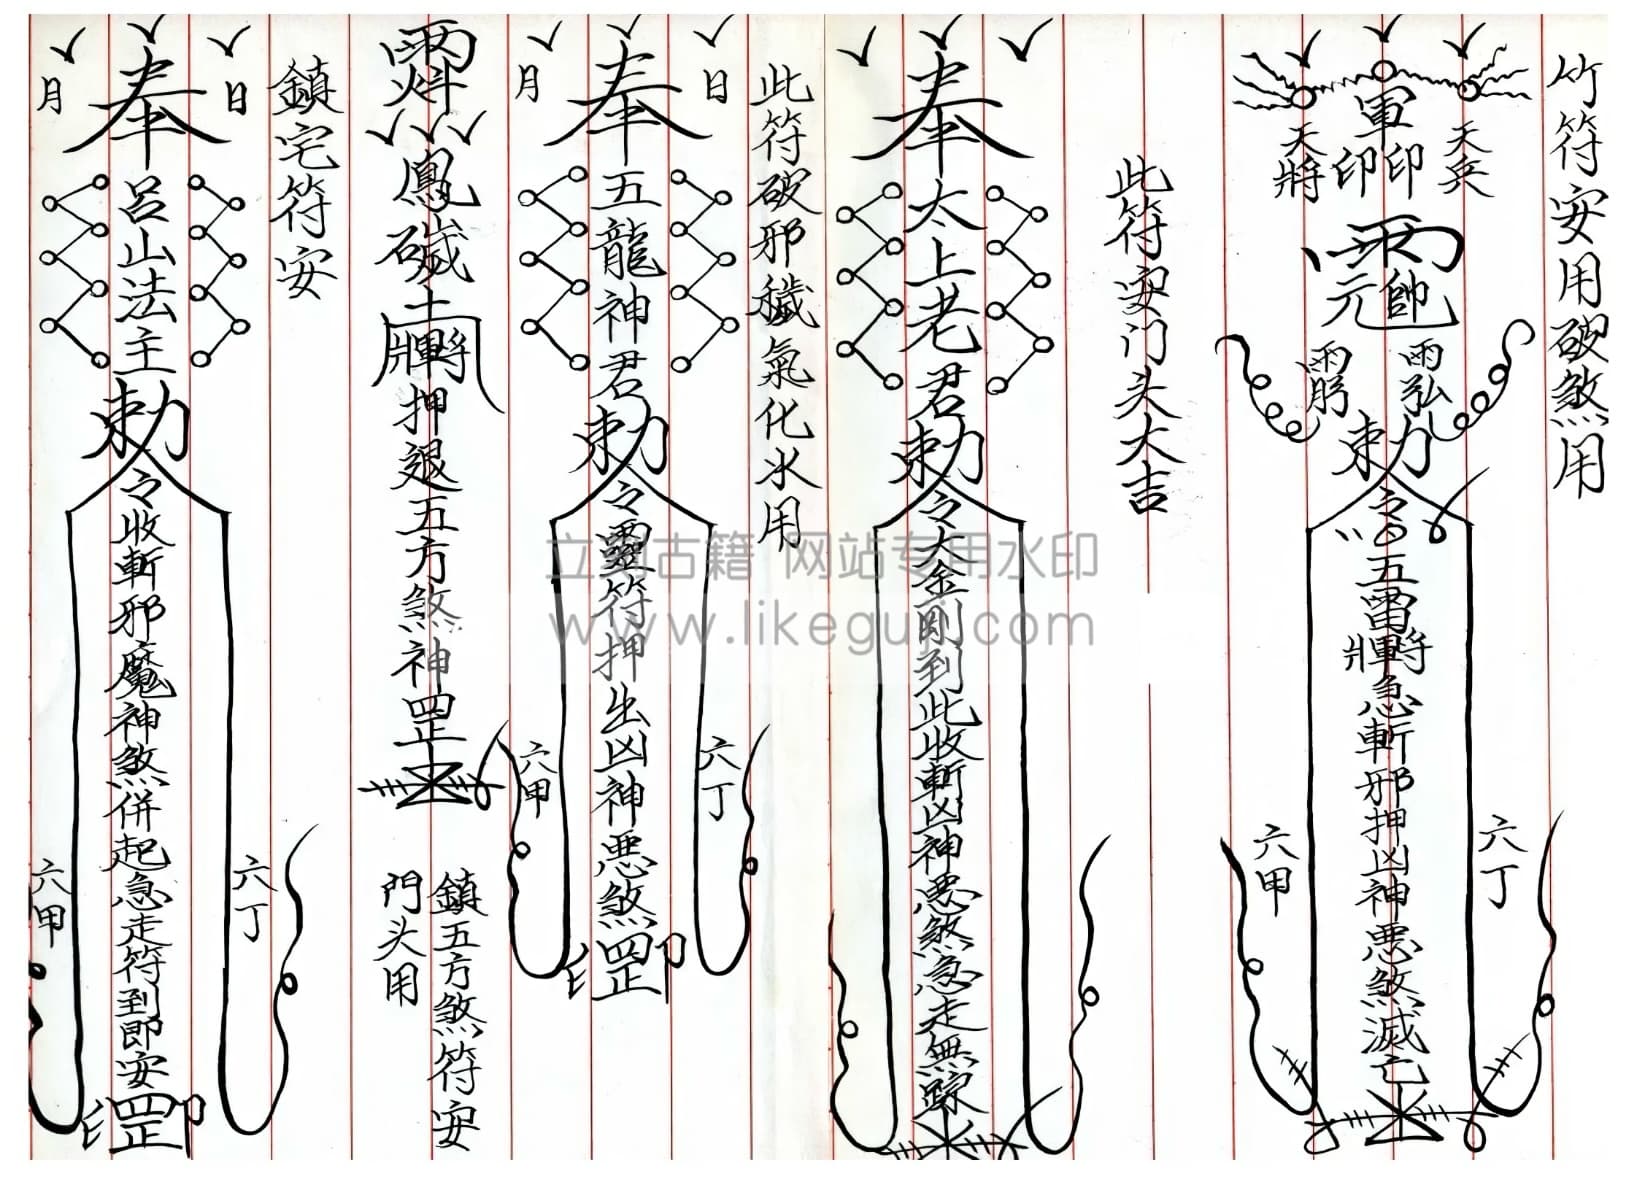 竹符安用破煞用
軍
印印
天兵
天將
元帥
勅令五雷將軍急斬邪押凶神悪煞滅亡
六丁
六甲
此符安门头大吉
奉太上老君勅令大金剛到此收斬凶神悪煞急走無踪
此符破邪穢氣化水用
日
月
奉五龍神君勅令靈符押出凶神悪煞罡
印
六丁
六甲
押退五方煞神罡
鎮五方煞符安
門头用
鎮宅符安
日
月
奉呂山法主勅令收斬邪魔神煞併起急走符到即安罡
印
六丁
六甲
立刻古籍 网站专用水印
www.likeguji.com